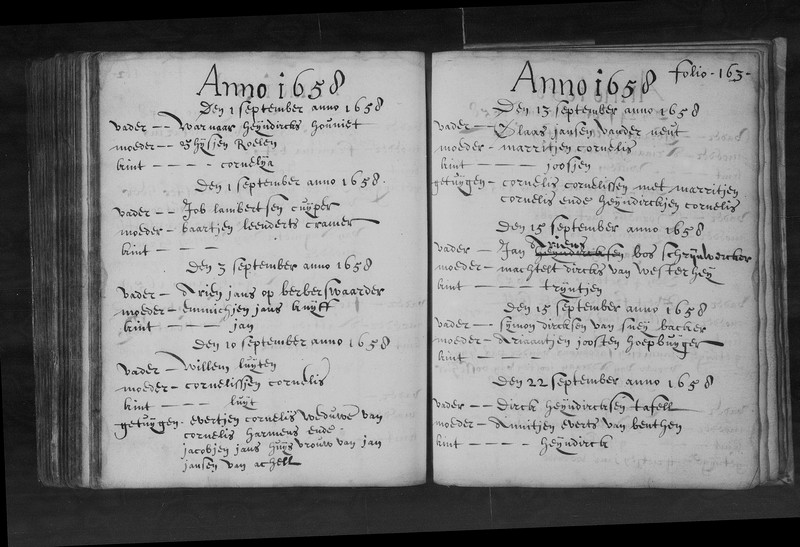 Anno 1658
Den 1 september anno 1658
vader - - Warnaar heyndircks houniet
moeder - ghysjen Roelen
kint - - - - - cornelya
Den 1 september anno 1658.
vader - - Job lambertsen cuyper
moeder - baartjen leenderts cramer
kint - - - - -
Den 3 september anno 1658
vader - Arien jans op berberswaarder
moeder - emmichjen jans knyff
kint - - - - - jan
Den 10 september anno 1658
vader - Willem luyten
moeder - cornelissjen cornelis
kint - - - - - luyt
getuygen - evertjen cornelis weduwe van
cornelis harmens ende
jacobjen jans huys vrouw van jan
jansen van achell
Anno 1658 folio - 163 -
Den 13 september anno 1658
vader - Claas jansen vander neut
moeder - marritjen cornelis
kint - - - - - joosjen
getuygen - cornelis cornelissen met marritjen
cornelis ende heyndirckjen cornelis
Den 15 september anno 1658
Ariens
vader - Jan heyndircksen bos schrynwercker
moeder - machtelt dircks van westerhey
kint - - - - - tryntjen
Den 15 september anno 1658
vader - - symon dircksen van sney backer
moeder - Ariaantjen joosten hoepbuyger
kint - - - - -
Den 22 september anno 1658
vader - - Dirck heyndircksen tafell
moeder - Annitjen everts van benthen
kint - - - - - heyndirck